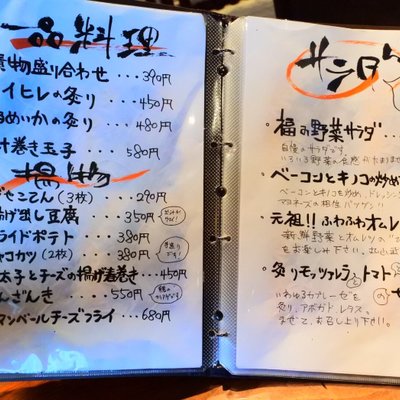 一品料理
漬物盛り合わせ・・・390円
イヒレの炙り・・・450円
るめいかの炙り・・・480円
巻き玉子・・・580円
揚物
てん(3枚)・・・290円
げ出し豆腐・・・350円
ライドポテト・・・380円
コカツ(2枚)・・・380円
太子とチーズの揚げ春巻き・・・450円
んざんき・・・550円
マンベールチーズフライ・・・680円
サラダ
・福の野菜サラダ
自慢のサラダです。
いろいろ野菜の食感が
・ベーコンとキノコの炒め
ベーコンとキノコを炒め、ドレッシング
マヨネーズの相性バツグン!!
・元祖!!ふわふわオムレ
新鮮野菜とオムレツの
をお楽しみ下さい。
・炙りモッツァレラとトマト
の
いわゆるカプレーゼを
炙り、アボガド レタス。
まぜて、お召し上り下さい。